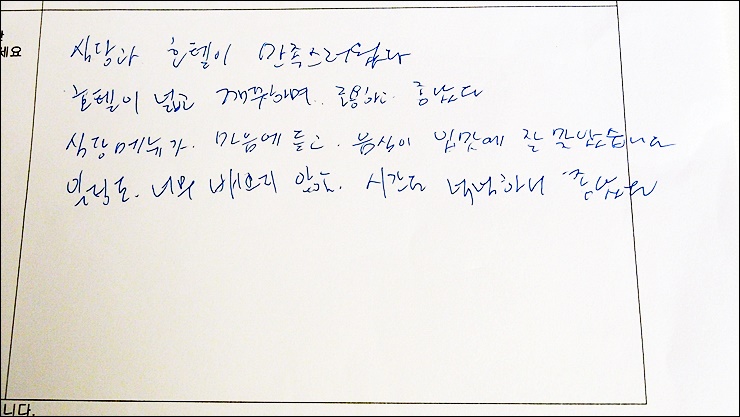 세요
식당과 호텔이 만족스러웠다
호텔이 넓고 깨끗하며. 조용하고. 좋았다
식당메뉴가. 마음에 들고. 음식이 입맛에 잘 맞았습니다
일정도. 너무 않고. 시간도 넉넉하니 좋았고
니다.